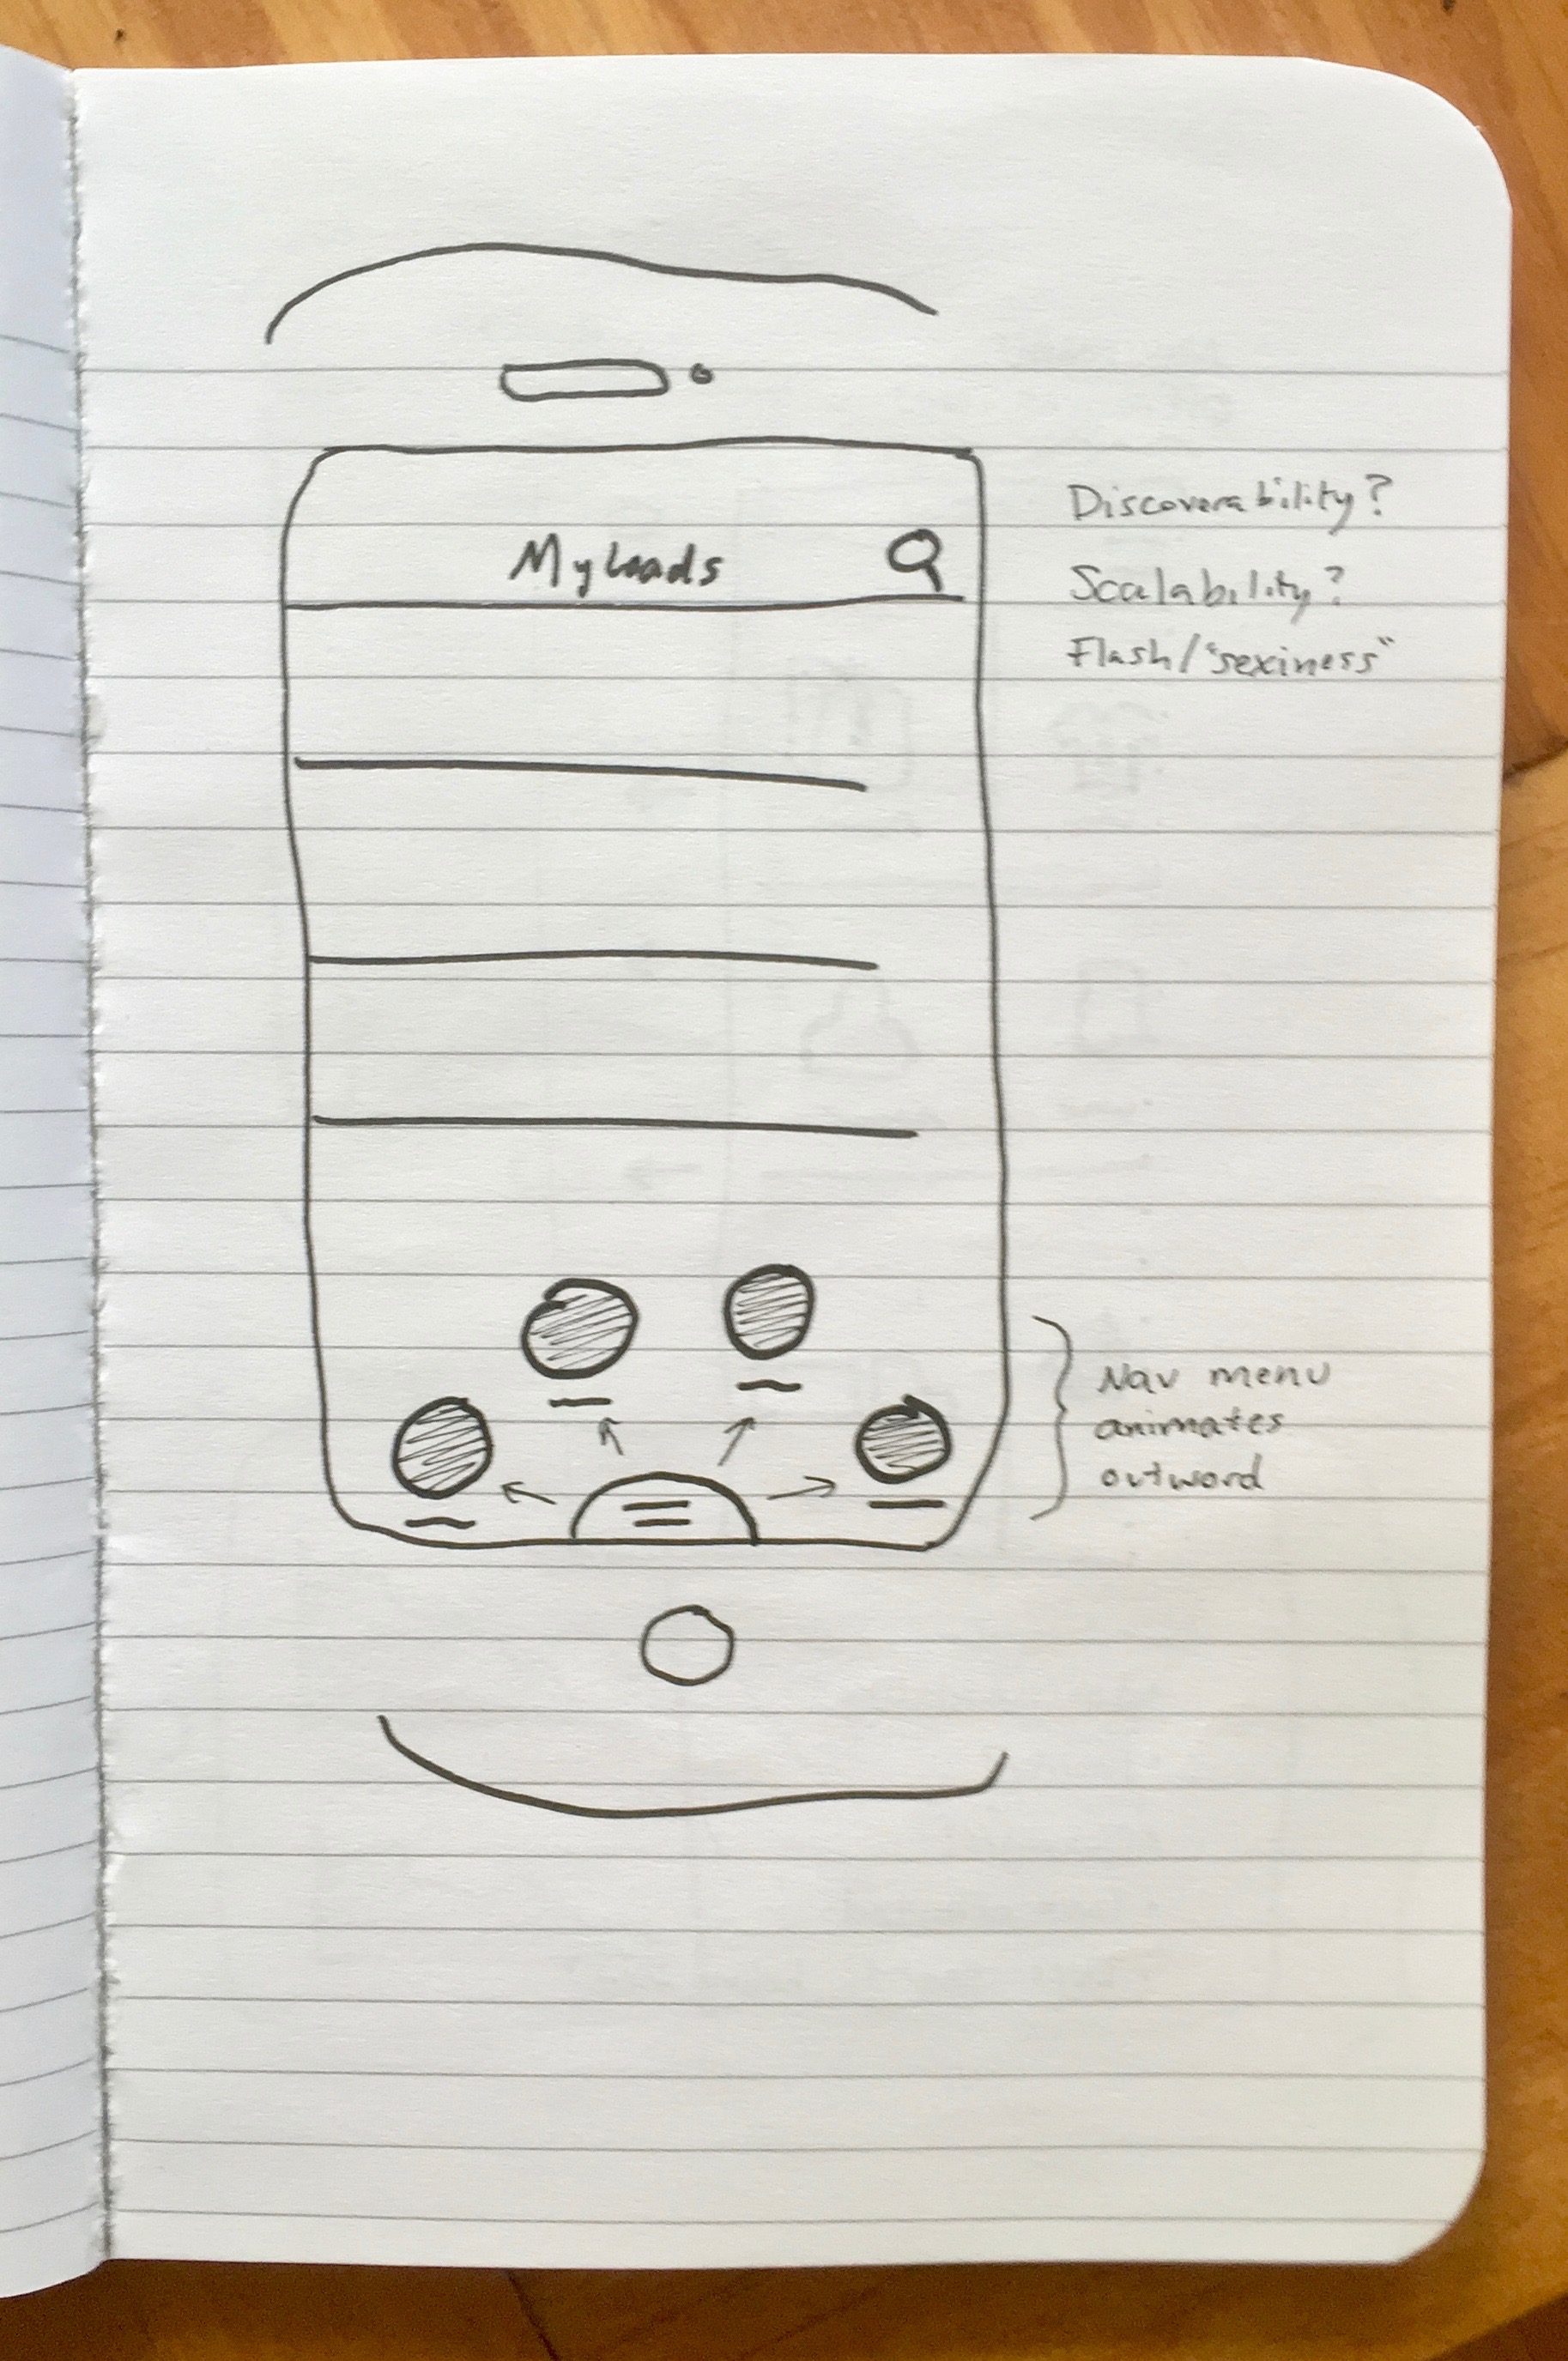 My Loads
Discoverability?
Scalability?
Flash/"sexiness"
Nav menu
animates
outword